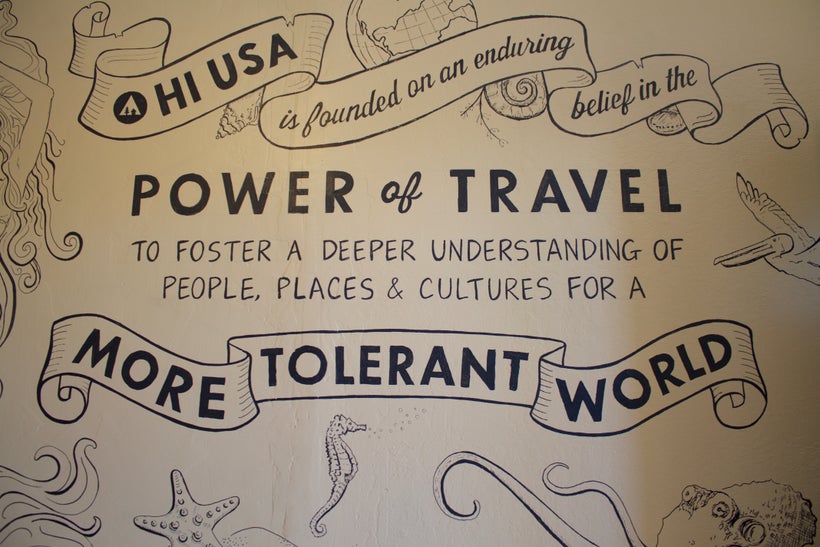 HI USA
is founded on an enduring
belief in the
POWER of TRAVEL
TO FOSTER A DEEPER UNDERSTANDING OF
PEOPLE, PLACES & CULTURES FOR A
MORE TOLERANT WORLD